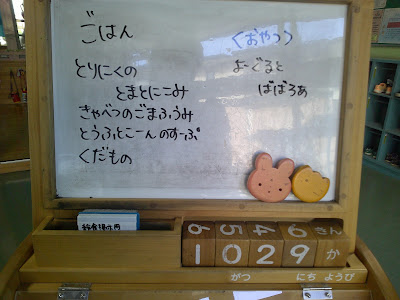 ごはん
とりにくの
とまとにこみ
きゃべつのごまふうみ
とうふとこーんのすーぷ
くだもの
<おやつ>
よーぐると
ばばろあ
きん
1029か
がつ にち ようび